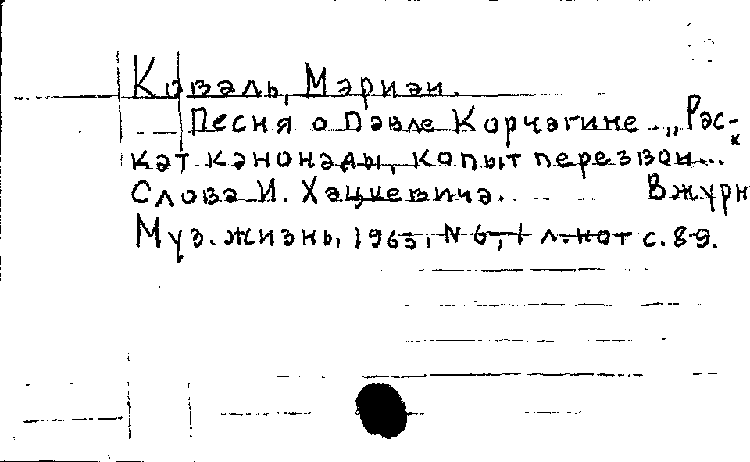 Коваль, Мариан.
Песня о Павле Корчагине. „Рас-
кат канонады, копыт перезвон...
Слова И. Хацкевича. В журн
Муз. жизнь, 1963, N 6, 1 л. нот с. 8-9.